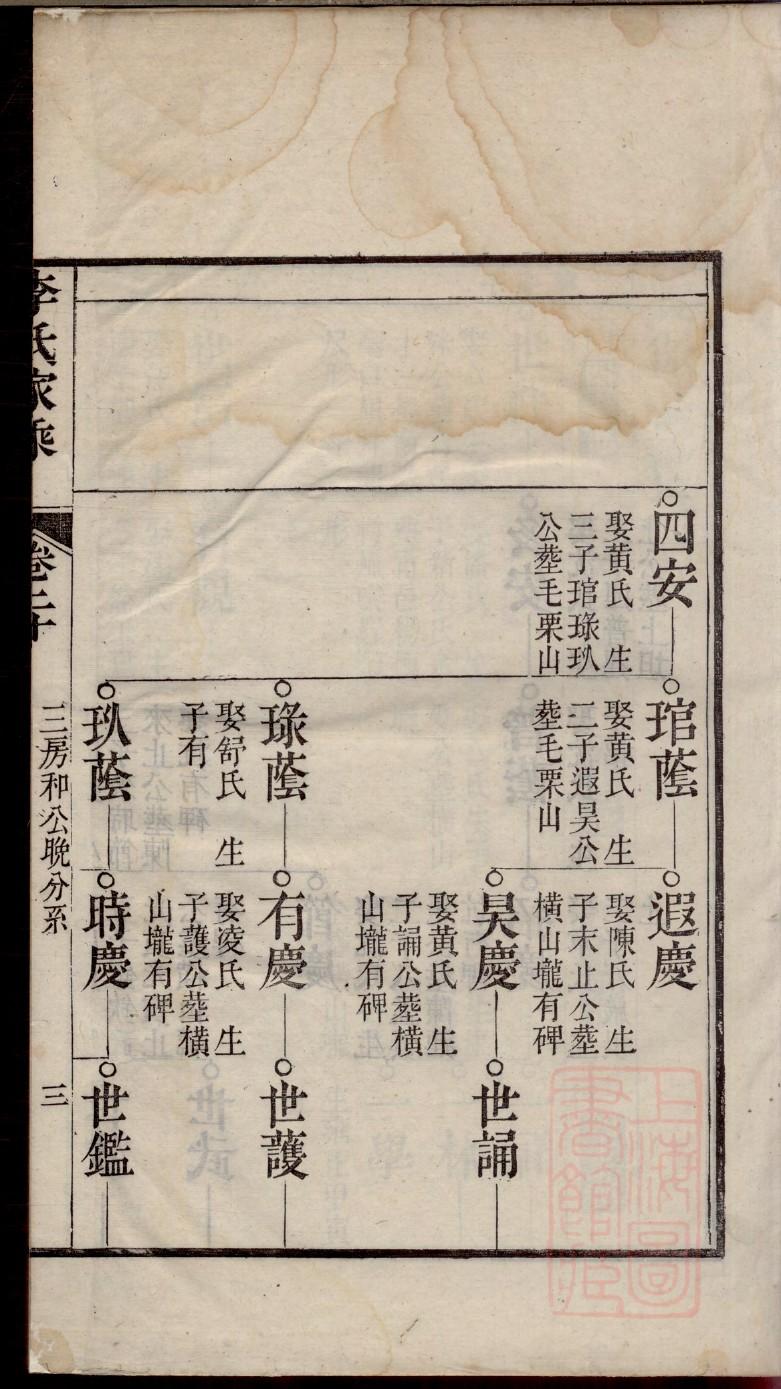 四安
娶黃氏 生
三子琯琭玐
公塟毛栗山
琯蔭
娶黃氏 生
二子遐昊公
塟毛栗山
遐慶
娶陳氏 生
子末止公塟
橫山壠有碑
昊慶
娶黃氏 生
子誦公塟橫
山壠有碑
世誦
琭蔭
娶舒氏 生
子有
有慶
娶凌氏 生
子護公塟橫
山壠有碑
世護
玐蔭
時慶
世鑑
李氏家乘
卷二十
三房和公晚分系
三
上海圖書館藏